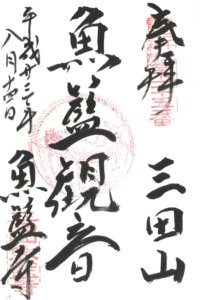 奉拝
三田山
魚籃観音
平成廿三年
八月十四日
魚籃寺